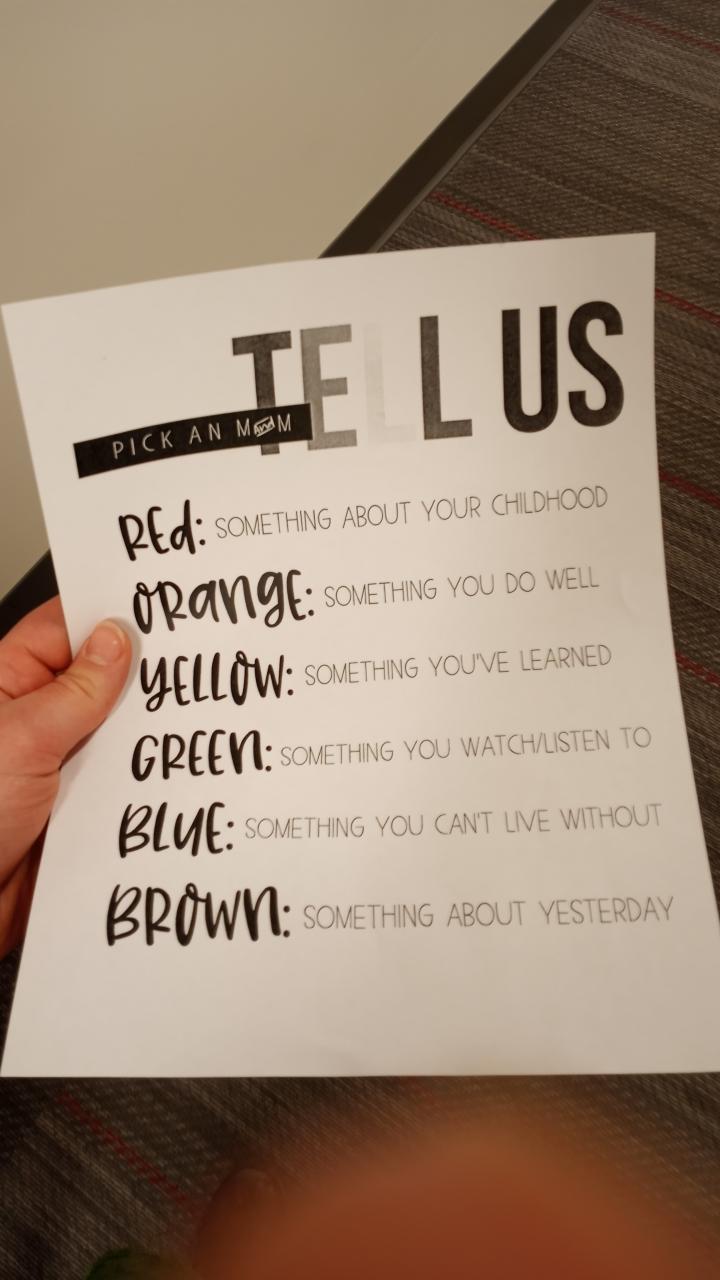 TELL US
PICK AN M and M
REd: SOMETHING ABOUT YOUR CHILDHOOD
ORANGE: SOMETHING YOU DO WELL
YELLOW: SOMETHING YOU'VE LEARNED
GREEN: SOMETHING YOU WATCH/LISTEN TO
BLUE: SOMETHING YOU CAN'T LIVE WITHOUT
BROWN: SOMETHING ABOUT YESTERDAY